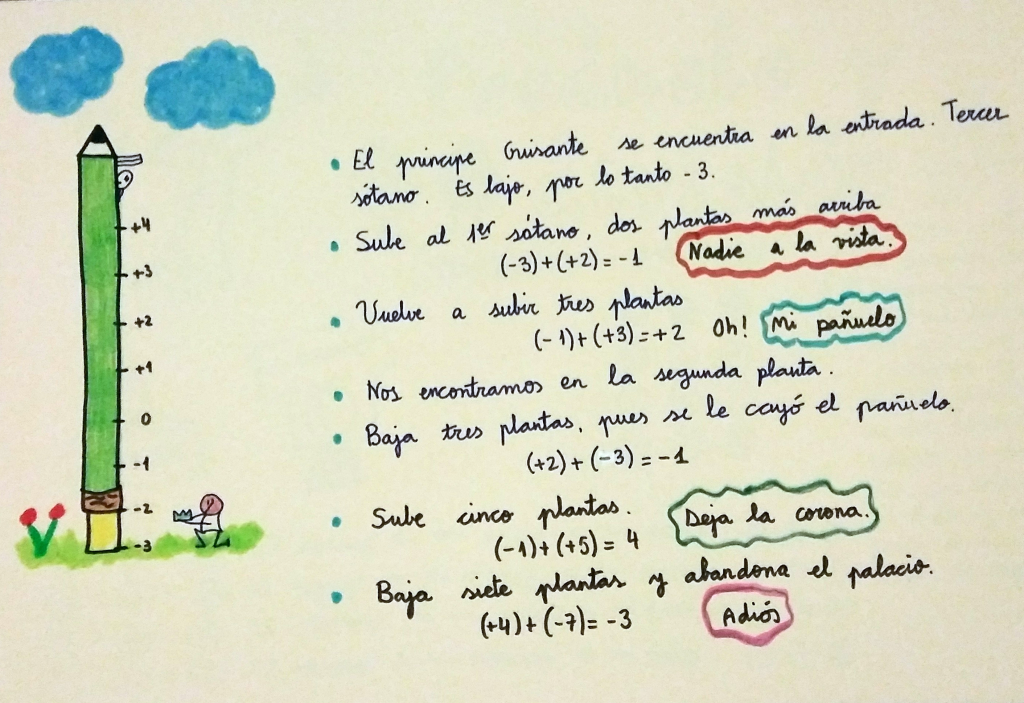 +4
+3
+2
+1
0
-1
-2
-3
• El príncipe Guisante se encuentra en la entrada. Tercer
sótano. Es bajo, por lo tanto -3.
• Sube al 1er sótano, dos plantas más arriba
(-3)+(+2)=-1 Nadie a la vista.
• Vuelve a subir tres plantas
(-1)+(+3)=+2 Oh! Mi pañuelo
• Nos encontramos en la segunda planta.
• Baja tres plantas, pues se le cayó el pañuelo.
(+2)+(-3)=-1
• Sube cinco plantas. Deja la corona.
(-1)+(+5)=4
• Baja siete plantas y abandona el palacio.
(+4)+(-7)=-3 Adiós